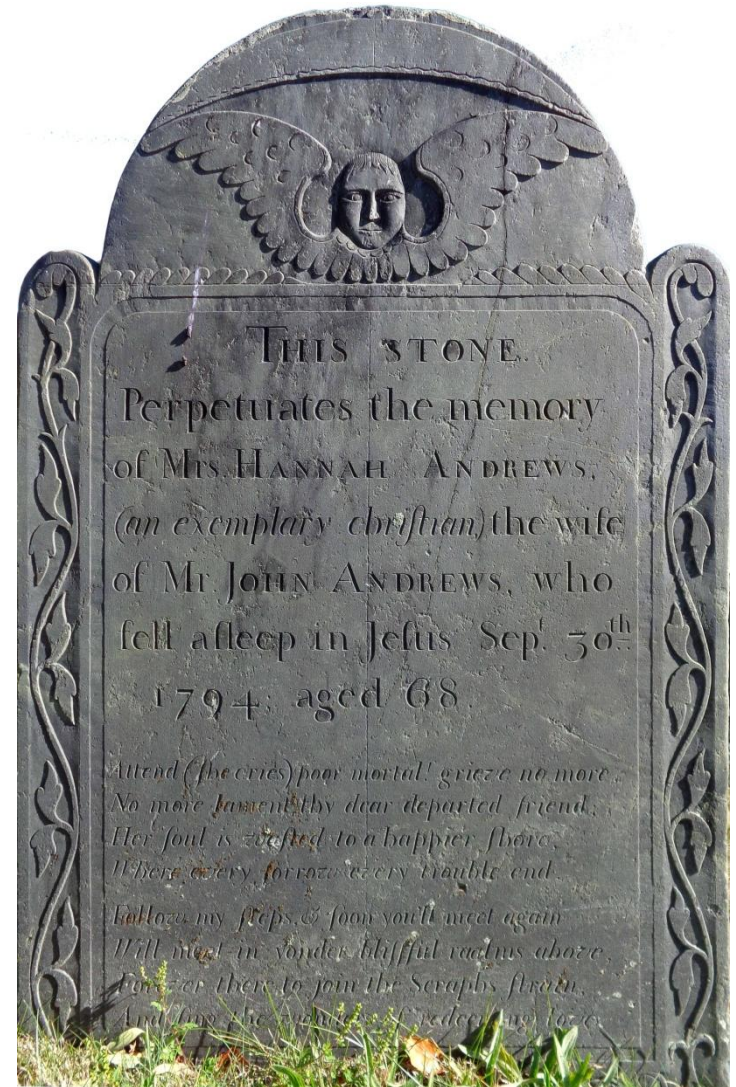 THIS STONE.
Perpetuates the memory
of Mrs. HANNAH ANDREWS,
(an exemplary chriſtian,) the wife
of Mr. JOHN ANDREWS, who
fell aſleep in Jeſus Sepᵗ. 30ᵗʰ
1794; aged 68.
Attend (ſhe cries) poor mortal! grieve no more,
No more lament thy dear departed friend;
Her ſoul is wafted to a happier ſhore,
Where every ſorrow every trouble end
Follow my ſteps, & ſoon you'll meet again
Will meet in yonder bliſsful realms above,
Forever there to join the Seraphs ſtrain,
And ſing the wonders of redeeming love